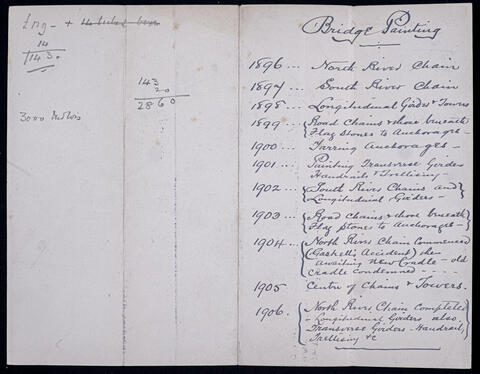 14
143.0
143
20
2860
3000
Bridge Painting
1896 ... North River Chain
1897 ... South River Chain
1898 ... Longitudinal Girders & Towers
1899 ... Road Chains & those beneath
Flag Stones to Anchorages -
1900 ... Tarring Anchorages -
1901 ... Painting Transverse Girders
Handrails & Trellising -
1902 ... South River Chains and
Longitudinal Girders -
1903 ... Road Chains & those beneath
Flag Stones to Anchorages -
1904 ... North River Chain Commenced
(Gaskell's Accident) then
Awaiting New Cradle - old
cradle condemned - - - -
1905 Centre of Chains & Towers.
1906. North River Chain Completed
- Longitudinal Girders also.
Transverse Girders - Handrails,
Trellising &c